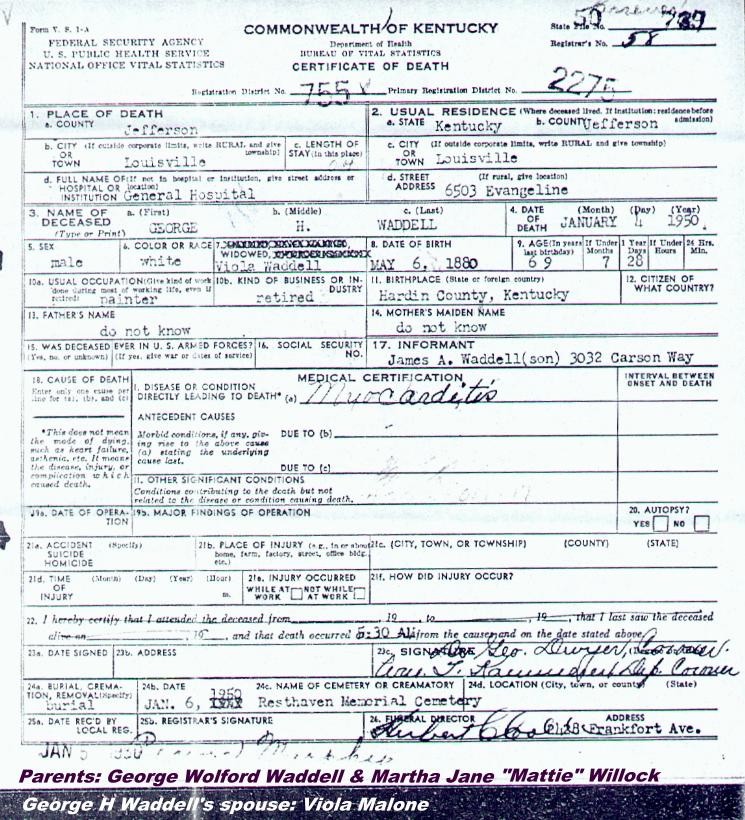 Form V. S. 1-A
FEDERAL SECURITY AGENCY
U. S. PUBLIC HEALTH SERVICE
NATIONAL OFFICE VITAL STATISTICS
COMMONWEALTH OF KENTUCKY
Department of Health
BUREAU OF VITAL STATISTICS
CERTIFICATE OF DEATH
State File No. 50
Registrar's No. 58
Registration District No. 755 Primary Registration District No. 2275
1. PLACE OF DEATH
a. COUNTY Jefferson
b. CITY (If outside corporate limits, write RURAL and give township)
OR TOWN Louisville
c. LENGTH OF STAY (in this place)
d. FULL NAME OF (If not in hospital or institution, give street address or location)
HOSPITAL OR INSTITUTION General Hospital
2. USUAL RESIDENCE (Where deceased lived. If institution: residence before admission)
a. STATE Kentucky b. COUNTY Jefferson
c. CITY (If outside corporate limits, write RURAL and give township)
OR TOWN Louisville
d. STREET ADDRESS (If rural, give location)
6503 Evangeline
3. NAME OF DECEASED (Type or Print)
a. (First) b. (Middle) c. (Last)
GEORGE H. WADDELL
4. DATE OF DEATH (Month) (Day) (Year)
JANUARY 4 1950
5. SEX
male
6. COLOR OR RACE
white
7.
WIDOWED,
Viola Waddell
8. DATE OF BIRTH
MAY 6, 1880
9. AGE (In years last birthday) If Under 1 Year Months Days If Under 24 Hrs. Hours Min.
69 7 28
10a. USUAL OCCUPATION (Give kind of work done during most of working life, even if retired)
painter
10b. KIND OF BUSINESS OR INDUSTRY
retired
11. BIRTHPLACE (State or foreign country)
Hardin County, Kentucky
12. CITIZEN OF WHAT COUNTRY?
13. FATHER'S NAME
do not know
14. MOTHER'S MAIDEN NAME
do not know
15. WAS DECEASED EVER IN U. S. ARMED FORCES?
(Yes, no, or unknown) (If yes, give war or dates of service)
16. SOCIAL SECURITY NO.
17. INFORMANT
James A. Waddell(son) 3032 Carson Way
18. CAUSE OF DEATH
Enter only one cause per line for (a), (b), and (c)
*This does not mean the mode of dying, such as heart failure, asthenia, etc. It means the disease, injury, or complication which caused death.
MEDICAL CERTIFICATION
I. DISEASE OR CONDITION
DIRECTLY LEADING TO DEATH* (a) Myocarditis
INTERVAL BETWEEN ONSET AND DEATH
ANTECEDENT CAUSES
Morbid conditions, if any, giving rise to the above cause (a) stating the underlying cause last.
DUE TO (b)
DUE TO (c)
II. OTHER SIGNIFICANT CONDITIONS
Conditions contributing to the death but not related to the disease or condition causing death.
19a. DATE OF OPERATION
19b. MAJOR FINDINGS OF OPERATION
20. AUTOPSY?
YES NO
21a. ACCIDENT SUICIDE HOMICIDE (Specify)
21b. PLACE OF INJURY (e.g., in or about home, farm, factory, street, office bldg., etc.)
21c. (CITY, TOWN, OR TOWNSHIP) (COUNTY) (STATE)
21d. TIME OF INJURY (Month) (Day) (Year) (Hour) m.
21e. INJURY OCCURRED
WHILE AT WORK NOT WHILE AT WORK
21f. HOW DID INJURY OCCUR?
22. I hereby certify that I attended the deceased from 19 , to 19 , that I last saw the deceased
alive on 19 , and that death occurred 5:30 AM from the cause and on the date stated above.
23a. DATE SIGNED
23b. ADDRESS
23c. SIGNATURE
Geo. Dwyer, Coroner
Dep. Coroner
24a. BURIAL, CREMATION, REMOVAL (Specify)
burial
24b. DATE
JAN. 6, 1950
24c. NAME OF CEMETERY OR CREAMATORY
Resthaven Memorial Cemetery
24d. LOCATION (City, town, or county) (State)
25a. DATE REC'D BY LOCAL REG.
JAN 5 1950
25b. REGISTRAR'S SIGNATURE
26. FUNERAL DIRECTOR ADDRESS
Herbert Frankfort Ave.
Parents: George Wolford Waddell & Martha Jane "Mattie" Willock
George H Waddell's spouse: Viola Malone